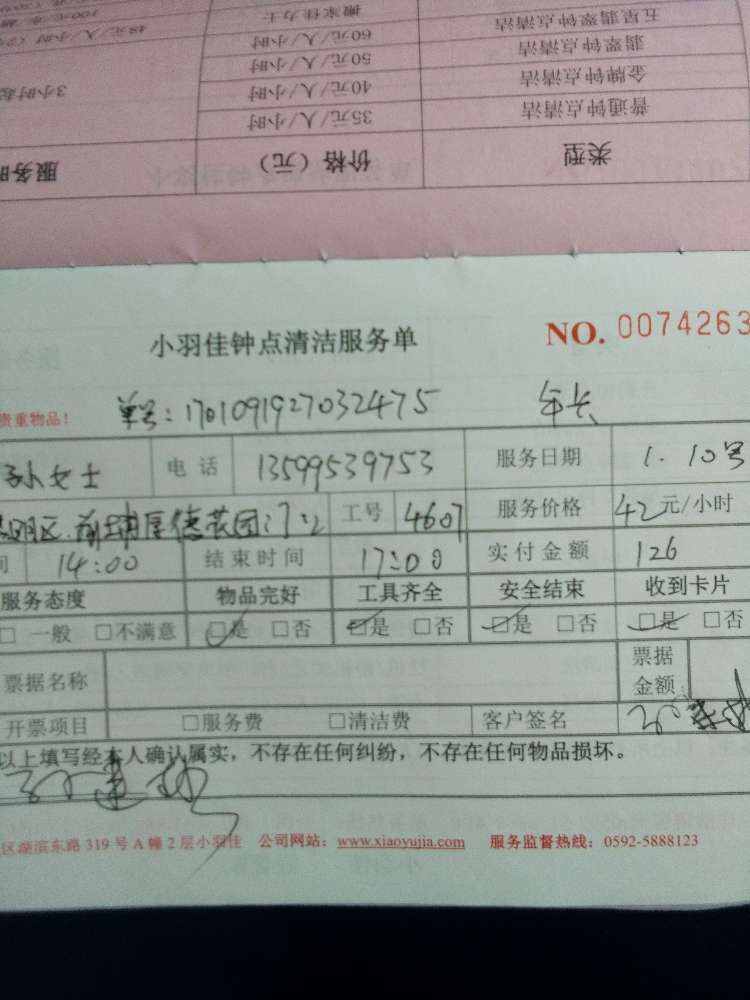 五星翡翠钟点清洁
翡翠钟点清洁 60元/人/小时
金牌钟点清洁 50元/人/小时
普通钟点清洁 40元/人/小时 3小时起
35元/人/小时
类型 价格（元） 服务时
小羽佳钟点清洁服务单 NO. 0074263
贵重物品！ 单号：1701091927032475 年长
孙女士 电话 13599539753 服务日期 1.10号
工号 4607 服务价格 42元/小时
间 14:00 结束时间 17:00 实付金额 126
服务态度 物品完好 工具齐全 安全结束 收到卡片
□ 一般 □不满意 □是 □否 □是 □否 □是 □否 □是 □否
票据名称 票据金额
开票项目 □服务费 □清洁费 客户签名
以上填写经本人确认属实，不存在任何纠纷，不存在任何物品损坏。
区湖滨东路 319 号 A 幢 2 层小羽佳 公司网站：www.xiaoyujia.com 服务监督热线：0592-5888123